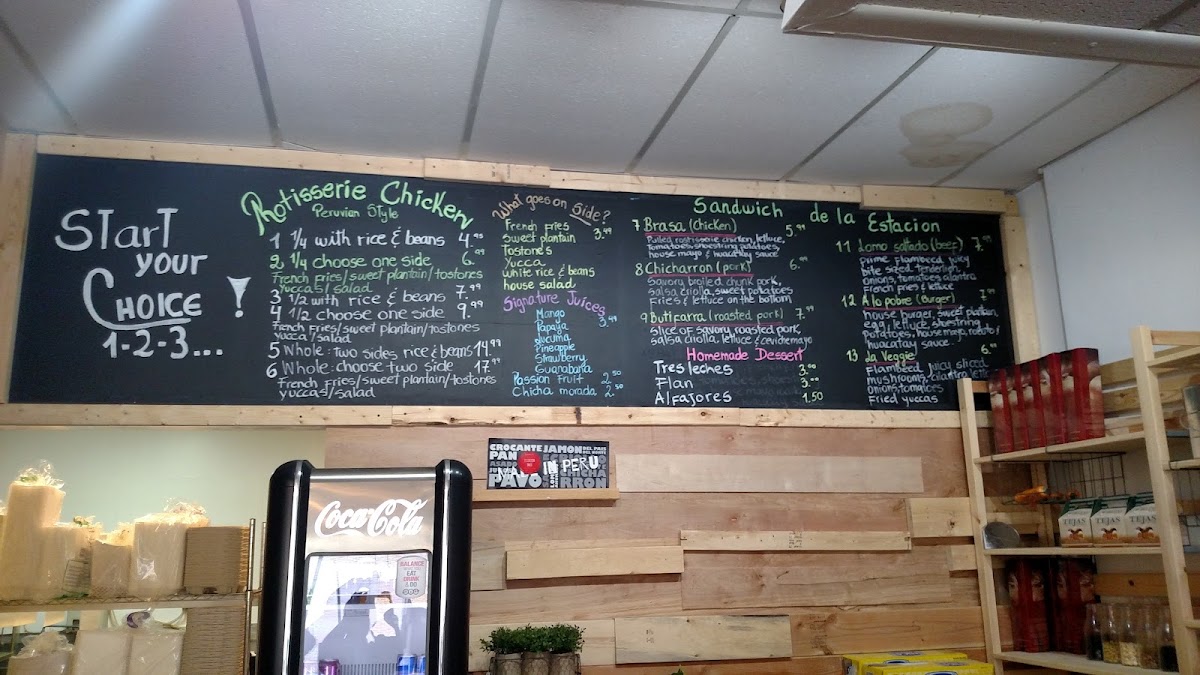 START
YOUR
CHOICE !
1-2-3...
Rotisserie Chicken
Peruvian Style
1 1/4 with rice & beans 4.95
2 1/4 choose one side 6.99
French fries/sweet plantain/tostones
yucca's/salad
3 1/2 with rice & beans 7.99
4 1/2 choose one side 9.99
French fries/sweet plantain/tostones
yuca/salad
5 Whole: two sides rice & beans 14.99
6 Whole: choose two side 17.99
French fries/sweet plantain/tostones
yucca's/salad
What goes on Side?
French Fries 3.49
Sweet plantain
Tostone's
Yucca
white rice & beans
house salad
Signature Juices
Mango 3.49
Papaya
Lucuma
Pineapple
Strawberry
Guanabana
Passion Fruit 2.50
Chicha morada 2.50
Sandwich de la Estacion
7 Brasa (chicken) 5.99
Pulled rostisserie chicken, lettuce,
Tomatoes, shoestring potatoes,
house mayo & huacatay sauce
8 Chicharron (pork) 6.99
Savory broiled chunk pork,
salsa criolla, sweet potatoes
Fries & lettuce on the bottom
9 Butifarra (roasted pork) 7.99
Slice of savory roasted pork,
salsa criolla, lettuce & cevichemayo
Homemade Dessert
Tres leches 3.90
Flan 3.00
Alfajores 1.50
11 Lomo saltado (beef) 7.99
prime flambeed, juicy
bite sized tenderloin,
onions, tomatoes, cilantro
French fries & lettuce
12 A lo pobre (Burger) 7.99
house burger, sweet plantain,
egg, lettuce, shoestring
potatoes, house mayo, rocoto/
huacatay sauce
13 La Veggie 6.99
Flambeed juicy sliced
mushrooms, cilantro, lettuce
onions, tomatoes
Fried yuccas
CROCANTE JAMON DEL PAIS
PAN
ASADO
IN PERU
PAVO
CHICHA
RRON
Coca-Cola
BALANCE
WHAT YOU
EAT
DRINK
& DO
TEJAS TEJAS TEJAS